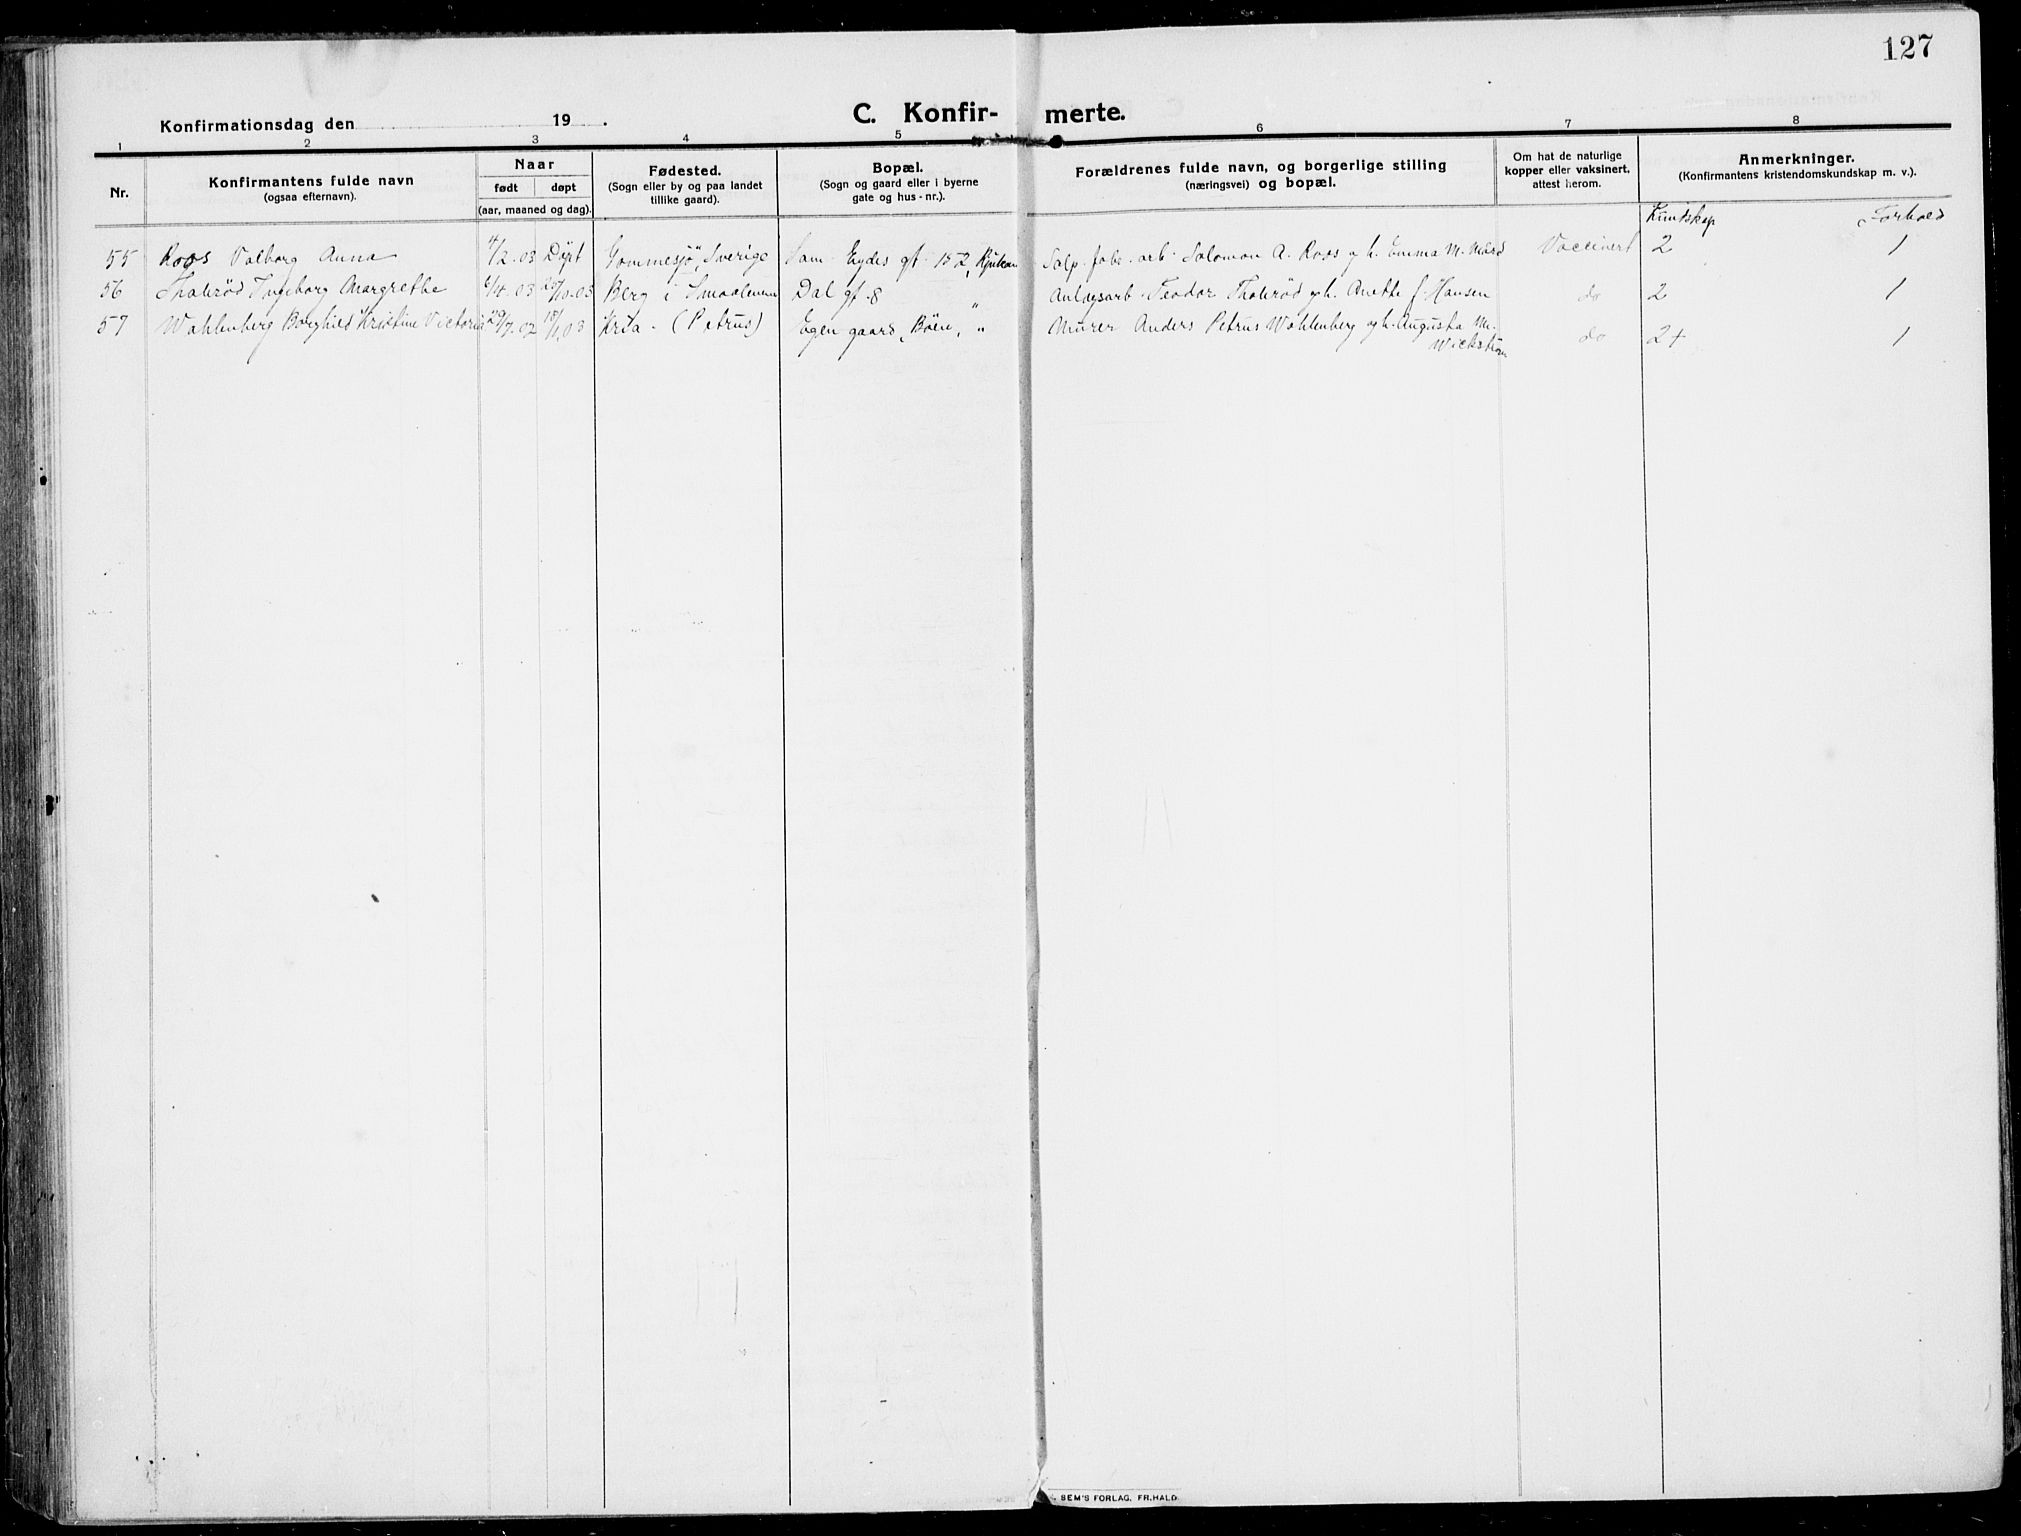 127
Konfirmationsdag den 19 .
C. Konfir- merte.
1 2 3 4 5 6 7 8
Nr.
Konfirmantens fulde navn
(ogsaa efternavn).
Naar
født døpt
(aar, maaned og dag).
Fødested.
(Sogn eller by og paa landet
tillike gaard).
Bopæl.
(Sogn og gaard eller i byerne
gate og hus-nr.).
Forældrenes fulde navn, og borgerlige stilling
(næringsvei) og bopæl.
Om hat de naturlige
kopper eller vaksinert,
attest herom.
Anmerkninger.
(Konfirmantens kristendomskundskap m. v.).
Kundskap Forhold
55 Roos Valborg Anna 4/2.03 Døpt Gommesjö, Sverige Sam Eydes gt. 152, Rjukan Salp. fabr. arb. Salomon A. Roos og h. Emma M. Vaccinert 2 1
56 Thakrød Ingeborg Margrethe 6/4.03 /10.03 Berg i Smaalenene Dal gt. 8 Anlægsarb. Teodor Thakrød og h. Anette f. Hansen do 2 1
57 Wahlenberg Borghild Kristine Victoria 29/7.02 18/1.03 Kr.ia. (Petrus) Egen gaard, Bøen, " Murer Anders Petrus Wahlenberg og h. Augusta M.
Wickström do 2+ 1
SEM'S FORLAG, FR.HALD.